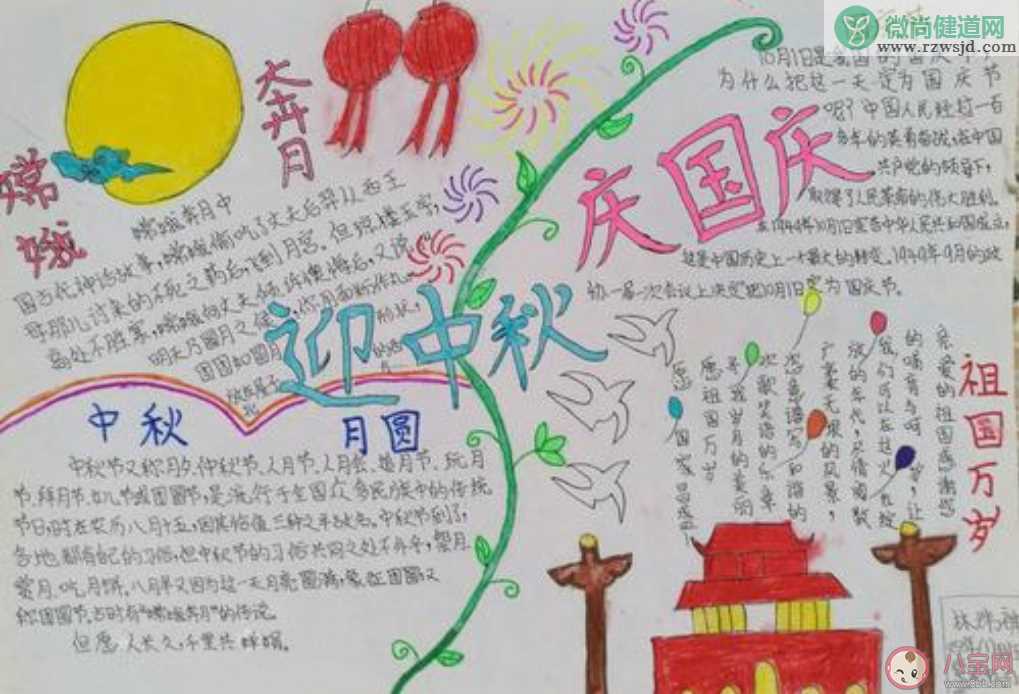 微尚健道网
www.rzwsjd.com
嫦
娥
奔月
迎中秋
庆国庆
嫦娥奔月中
国古代神话故事，嫦娥偷吃了丈夫后羿从西王
母那儿讨来的不死之药后，飞到月宫。但琼楼玉宇，
高处不胜寒，嫦娥向丈夫倾诉懊悔后，又说
明天乃圆月之候，你用面粉作丸
团团如圆月形状，
放在屋子
中秋
月圆
中秋节又称月夕、仲秋节、八月节、八月会、追月节、玩月
节、拜月节、女儿节或团圆节，是流行于全国众多民族中的传统
节日，时在农历八月十五，因其恰值三秋之半故名。中秋节到了，
各地都有自己的习俗，但中秋节的习俗共同之处不外乎，祭月
赏月、吃月饼。八月半又因为这一天月亮圆满，象征团圆又
称团圆节古时有“嫦娥奔月”的传说。
但愿人长久，千里共婵娟。
10月1日是我国的国庆节，
为什么把这一天定为国庆节
呢？中国人民经过一百
多年的英勇奋战，在中国
共产党的领导下，
取得了人民革命的伟大胜利。
在1949年10月1日宣告中华人民共和国成立，
这是中国历史上一个最大的转变。1949年9月的政
协一届一次会议上决定把10月1日定为国庆节。
祖国万岁
亲爱的祖国感谢您
的哺育与呵护，让
我们可以在这火红绽
放的年代，尽情阅歌
广袤无垠的风景，
您总谱写和谐的
次歌笑语的乐章
予我岁月的美丽
愿祖国万岁
愿
八宝网
www.8bb.com